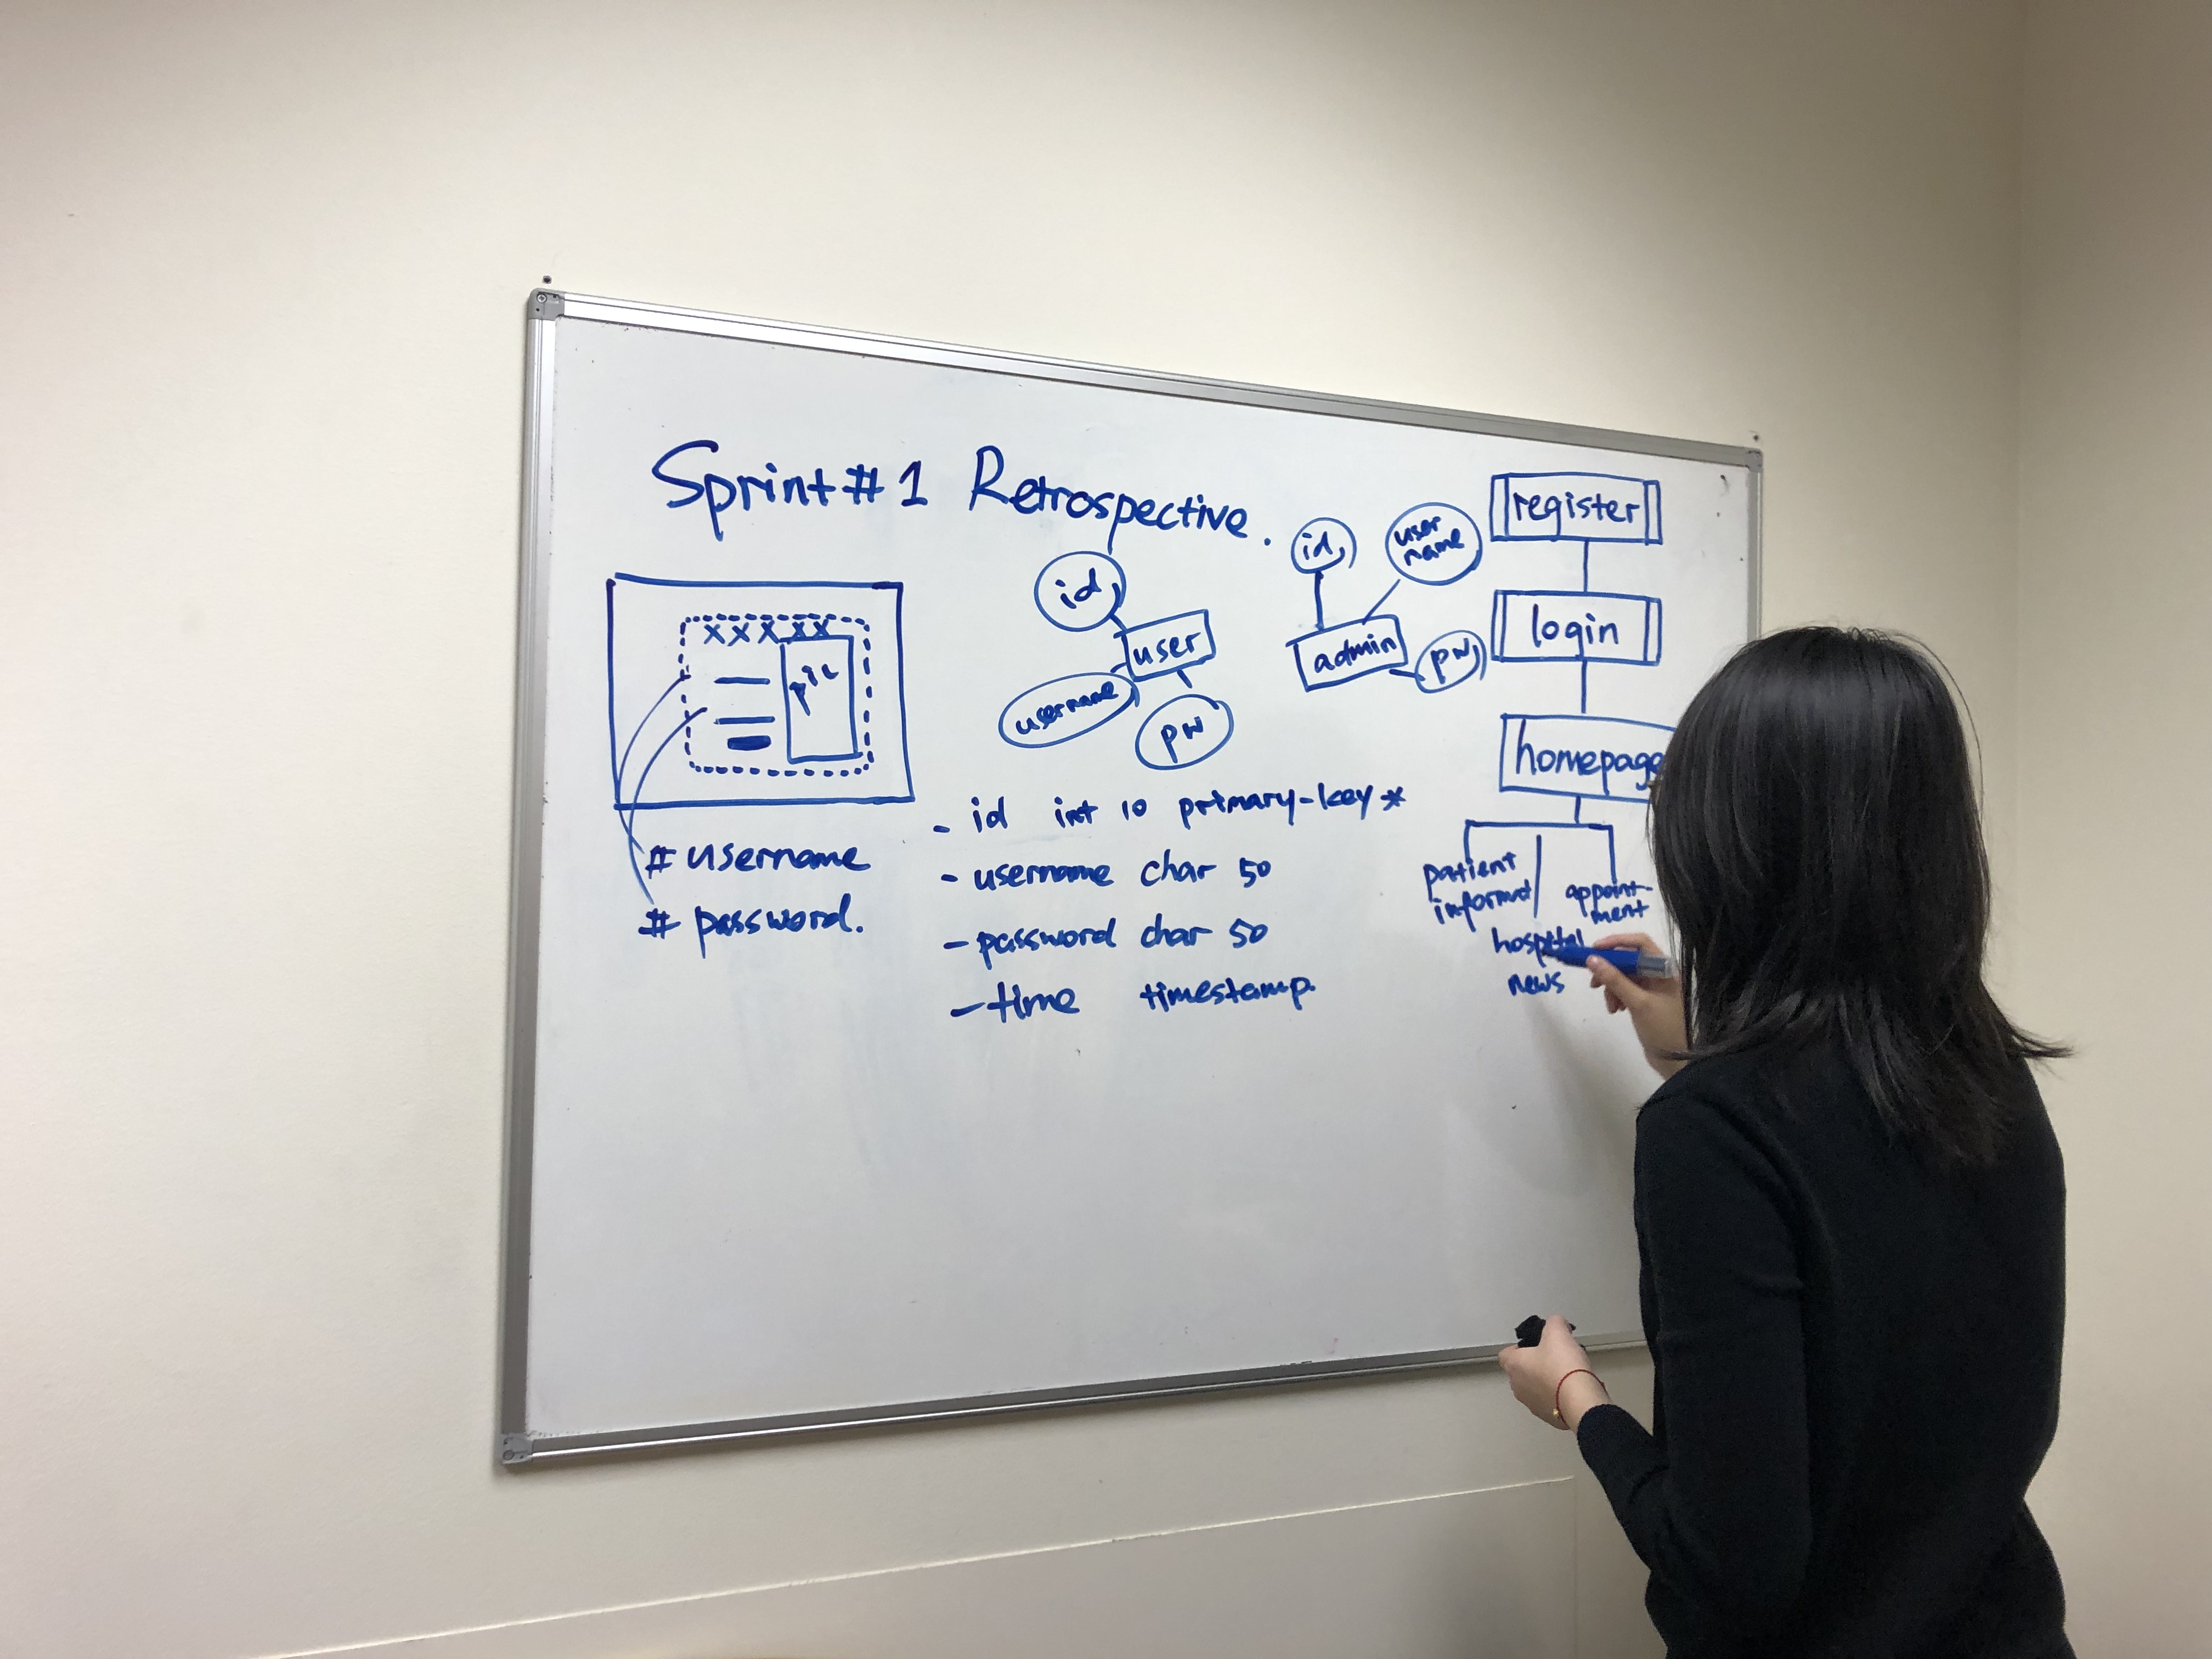 Sprint #1 Retrospective.
x x x x x
pic
# username
# password.
id
user
username
pw
id
user
name
admin
pw
- id int 10 primary-key *
- username char 50
- password char 50
- time timestamp.
register
login
homepage
patient
informat
appoint-
ment
hospital
news